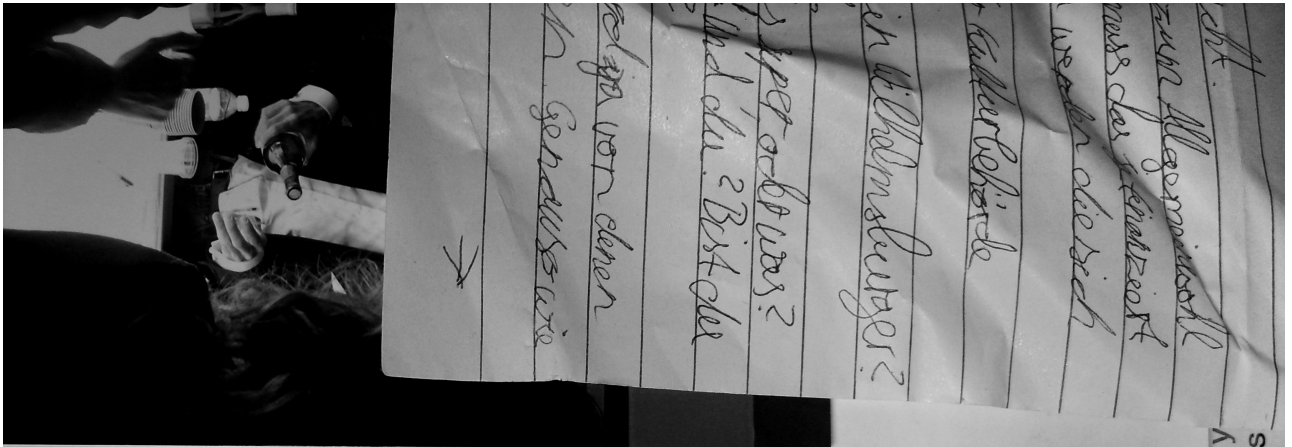 cht.
zum Allgemeinwohl
muss das finanziert
werden die sich
Kulturbehörde
in Wilhelmsburger?
oder was?
Und du? Bist du
von denen
n. Genauso wie
y
s